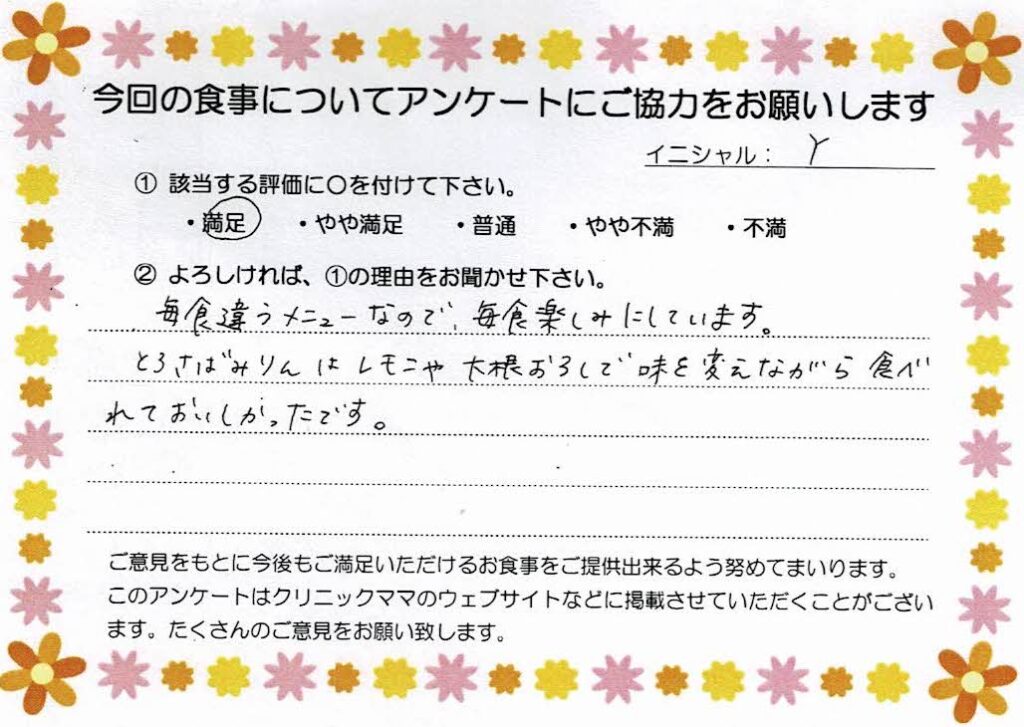 今回の食事についてアンケートにご協力をお願いします
イニシャル： Y
① 該当する評価に〇を付けて下さい。
・満足 ・やや満足 ・普通 ・やや不満 ・不満
② よろしければ、①の理由をお聞かせ下さい。
毎食違うメニューなので、毎食楽しみにしています。
とろさばみりんはレモンや大根おろしで味を変えながら食べ
れておいしかったです。
ご意見をもとに今後もご満足いただけるお食事をご提供出来るよう努めてまいります。
このアンケートはクリニックママのウェブサイトなどに掲載させていただくことがござい
ます。たくさんのご意見をお願い致します。